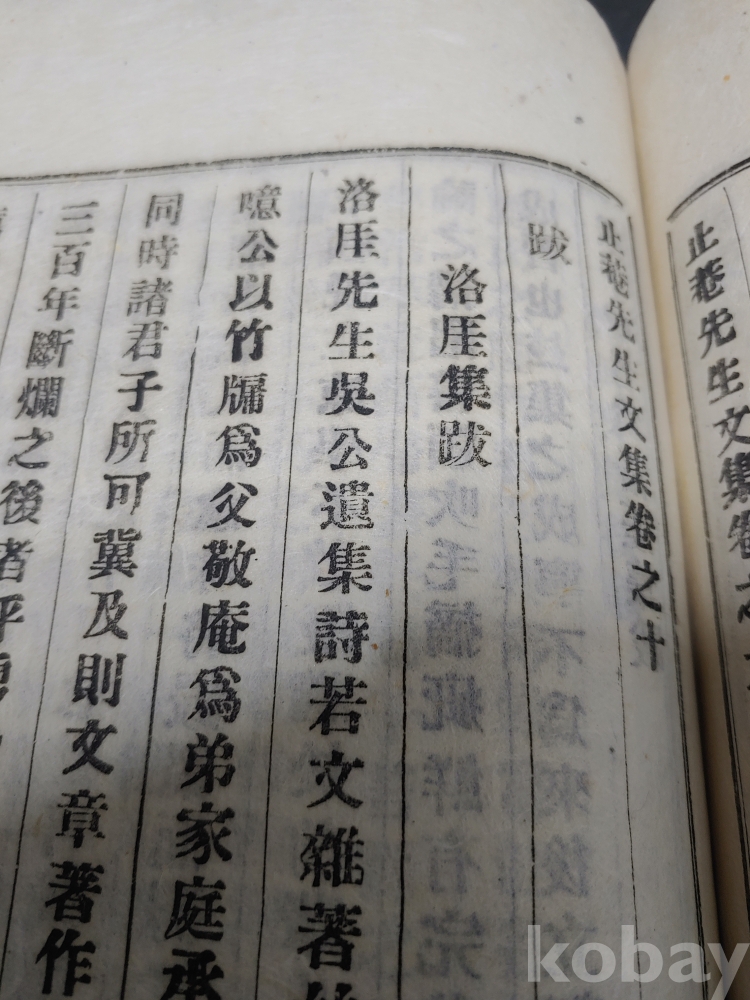 止菴先生文集卷之十
跋
洛厓集跋
洛厓先生吳公遺集詩若文雜著
噫公以竹牖爲父敬庵爲弟家庭承
同時諸君子所可冀及則文章著作
三百年斷爛之後者平
止菴先生文集卷之
kobay